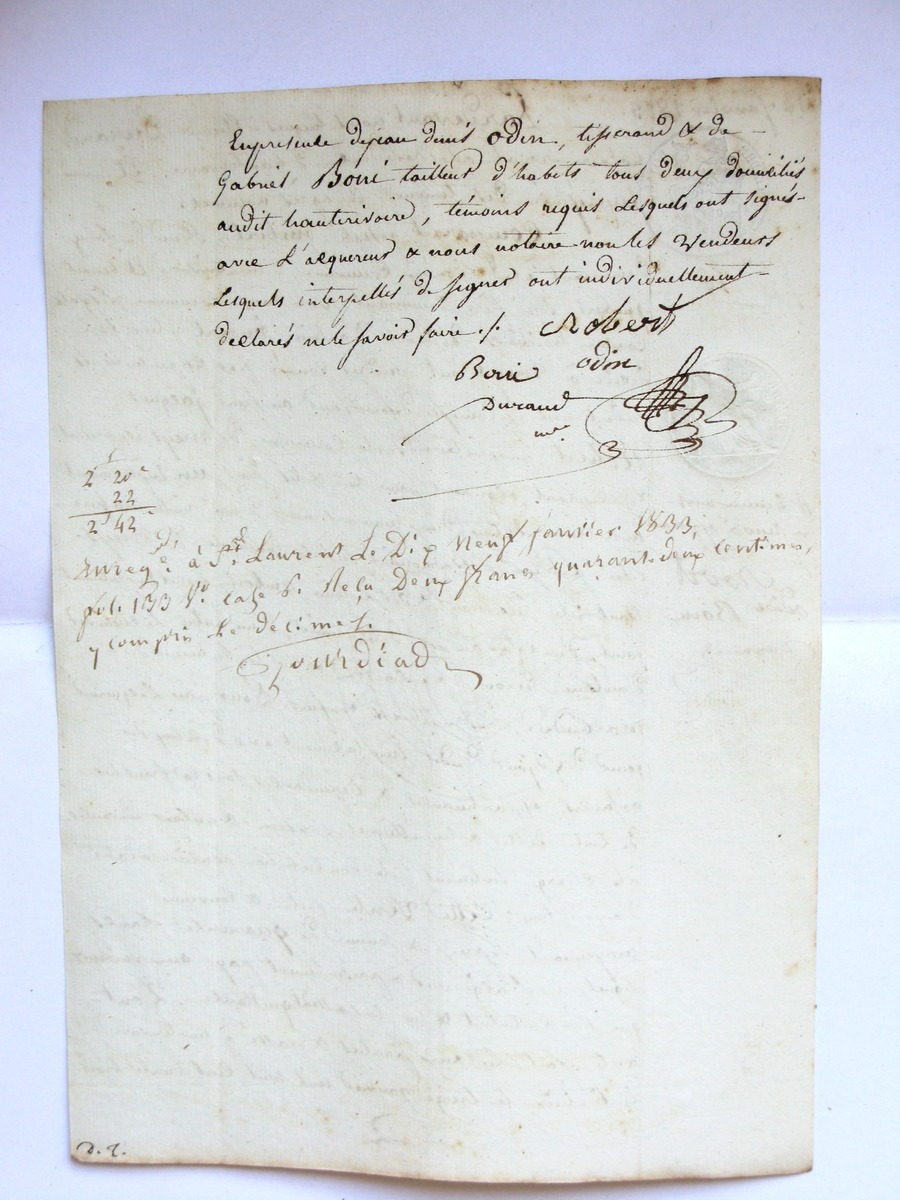 En présence de jean denis odin, tisserand & de
Gabriel Boni tailleur d'habits tous deux domiciliés
audit hauterivoire, témoins requis lesquels ont signés
avec L'acquereur & nous notaire non les Vendeurs
Lesquels interpellés de signer ont individuellement
déclarés ne le savoir faire ./.
Robert
Boni odin
Durand
nre
2f 20c
22
2f 42
Enregé. à St. Laurent Le Dix Neuf janvier 1833,
fol. 133 Vo. case 6. Reçu Deux francs quarant-deux centimes,
y compris le décime.
Gourdiad
D. T.